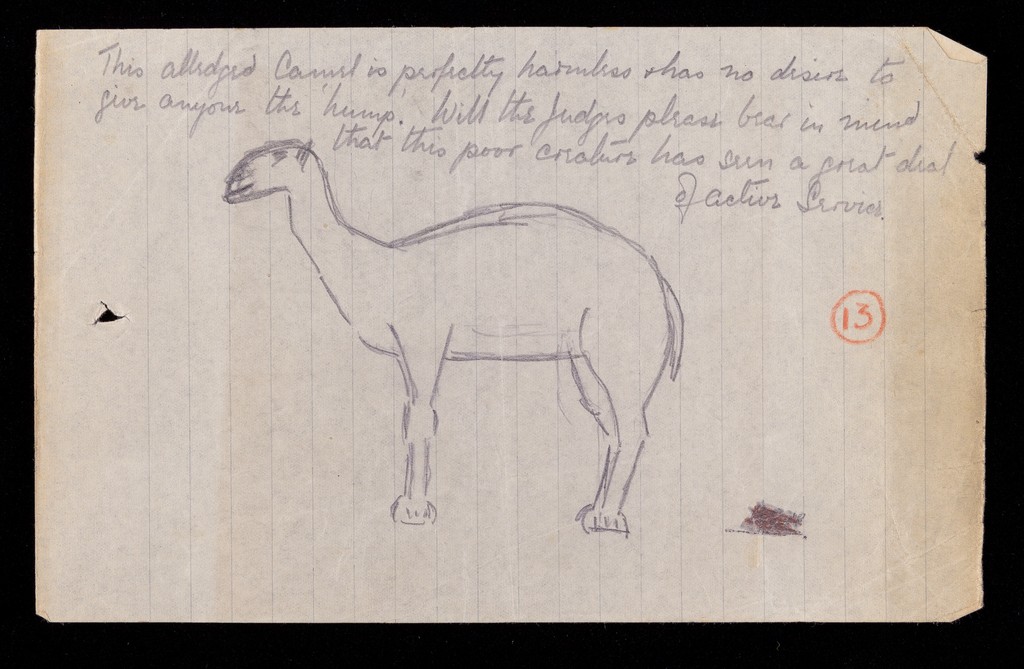 This alledged Camel is perfectly harmless & has no desire to
give anyone the 'hump.' Will the Judges please bear in mind
that this poor creature has seen a great deal
of active Service.
13